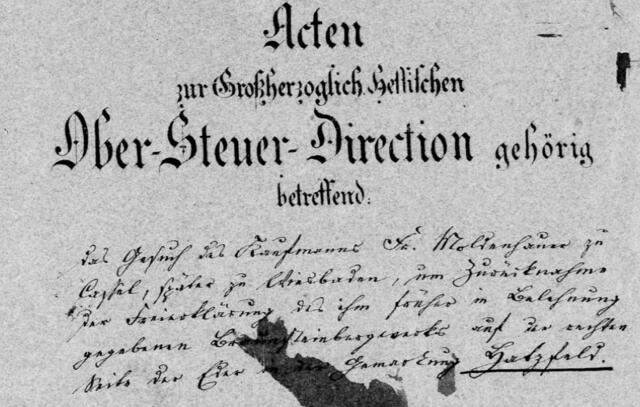 Acten
zur Großherzoglich Hessischen
Ober-Steuer-Direction gehörig
betreffend:
das Gesuch des Kaufmanns Fr. Moldenhauer zu
Cassel, später zu Wiesbaden, um Zurücknahme
der Freierklärung des ihm früher in Belehnung
gegebenen Braunsteinbergwerks auf der rechten
Seite der Eder in der Gemarkung Hatzfeld.